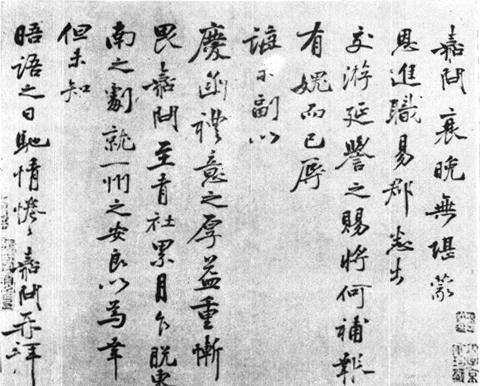 嘉問衰晚無堪蒙
恩進職易郡悉出
交游延譽之賜將何補報
有媿而已辱
誨示副以
慶函禮意之厚益重慚
畏嘉問至青社累月乍脫東
南之劇就一州之安良以為幸
但未知
晤語之日馳情嘉問再拜